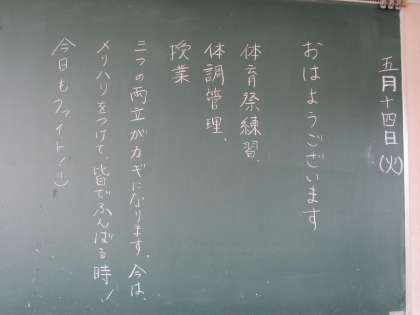 五月十四日(火)
おはようございます
体育祭練習、
体調管理、
授業
三つの両立がカギになります。今は、
メリハリをつけて、皆でふんばる時!
今日もファイト!!